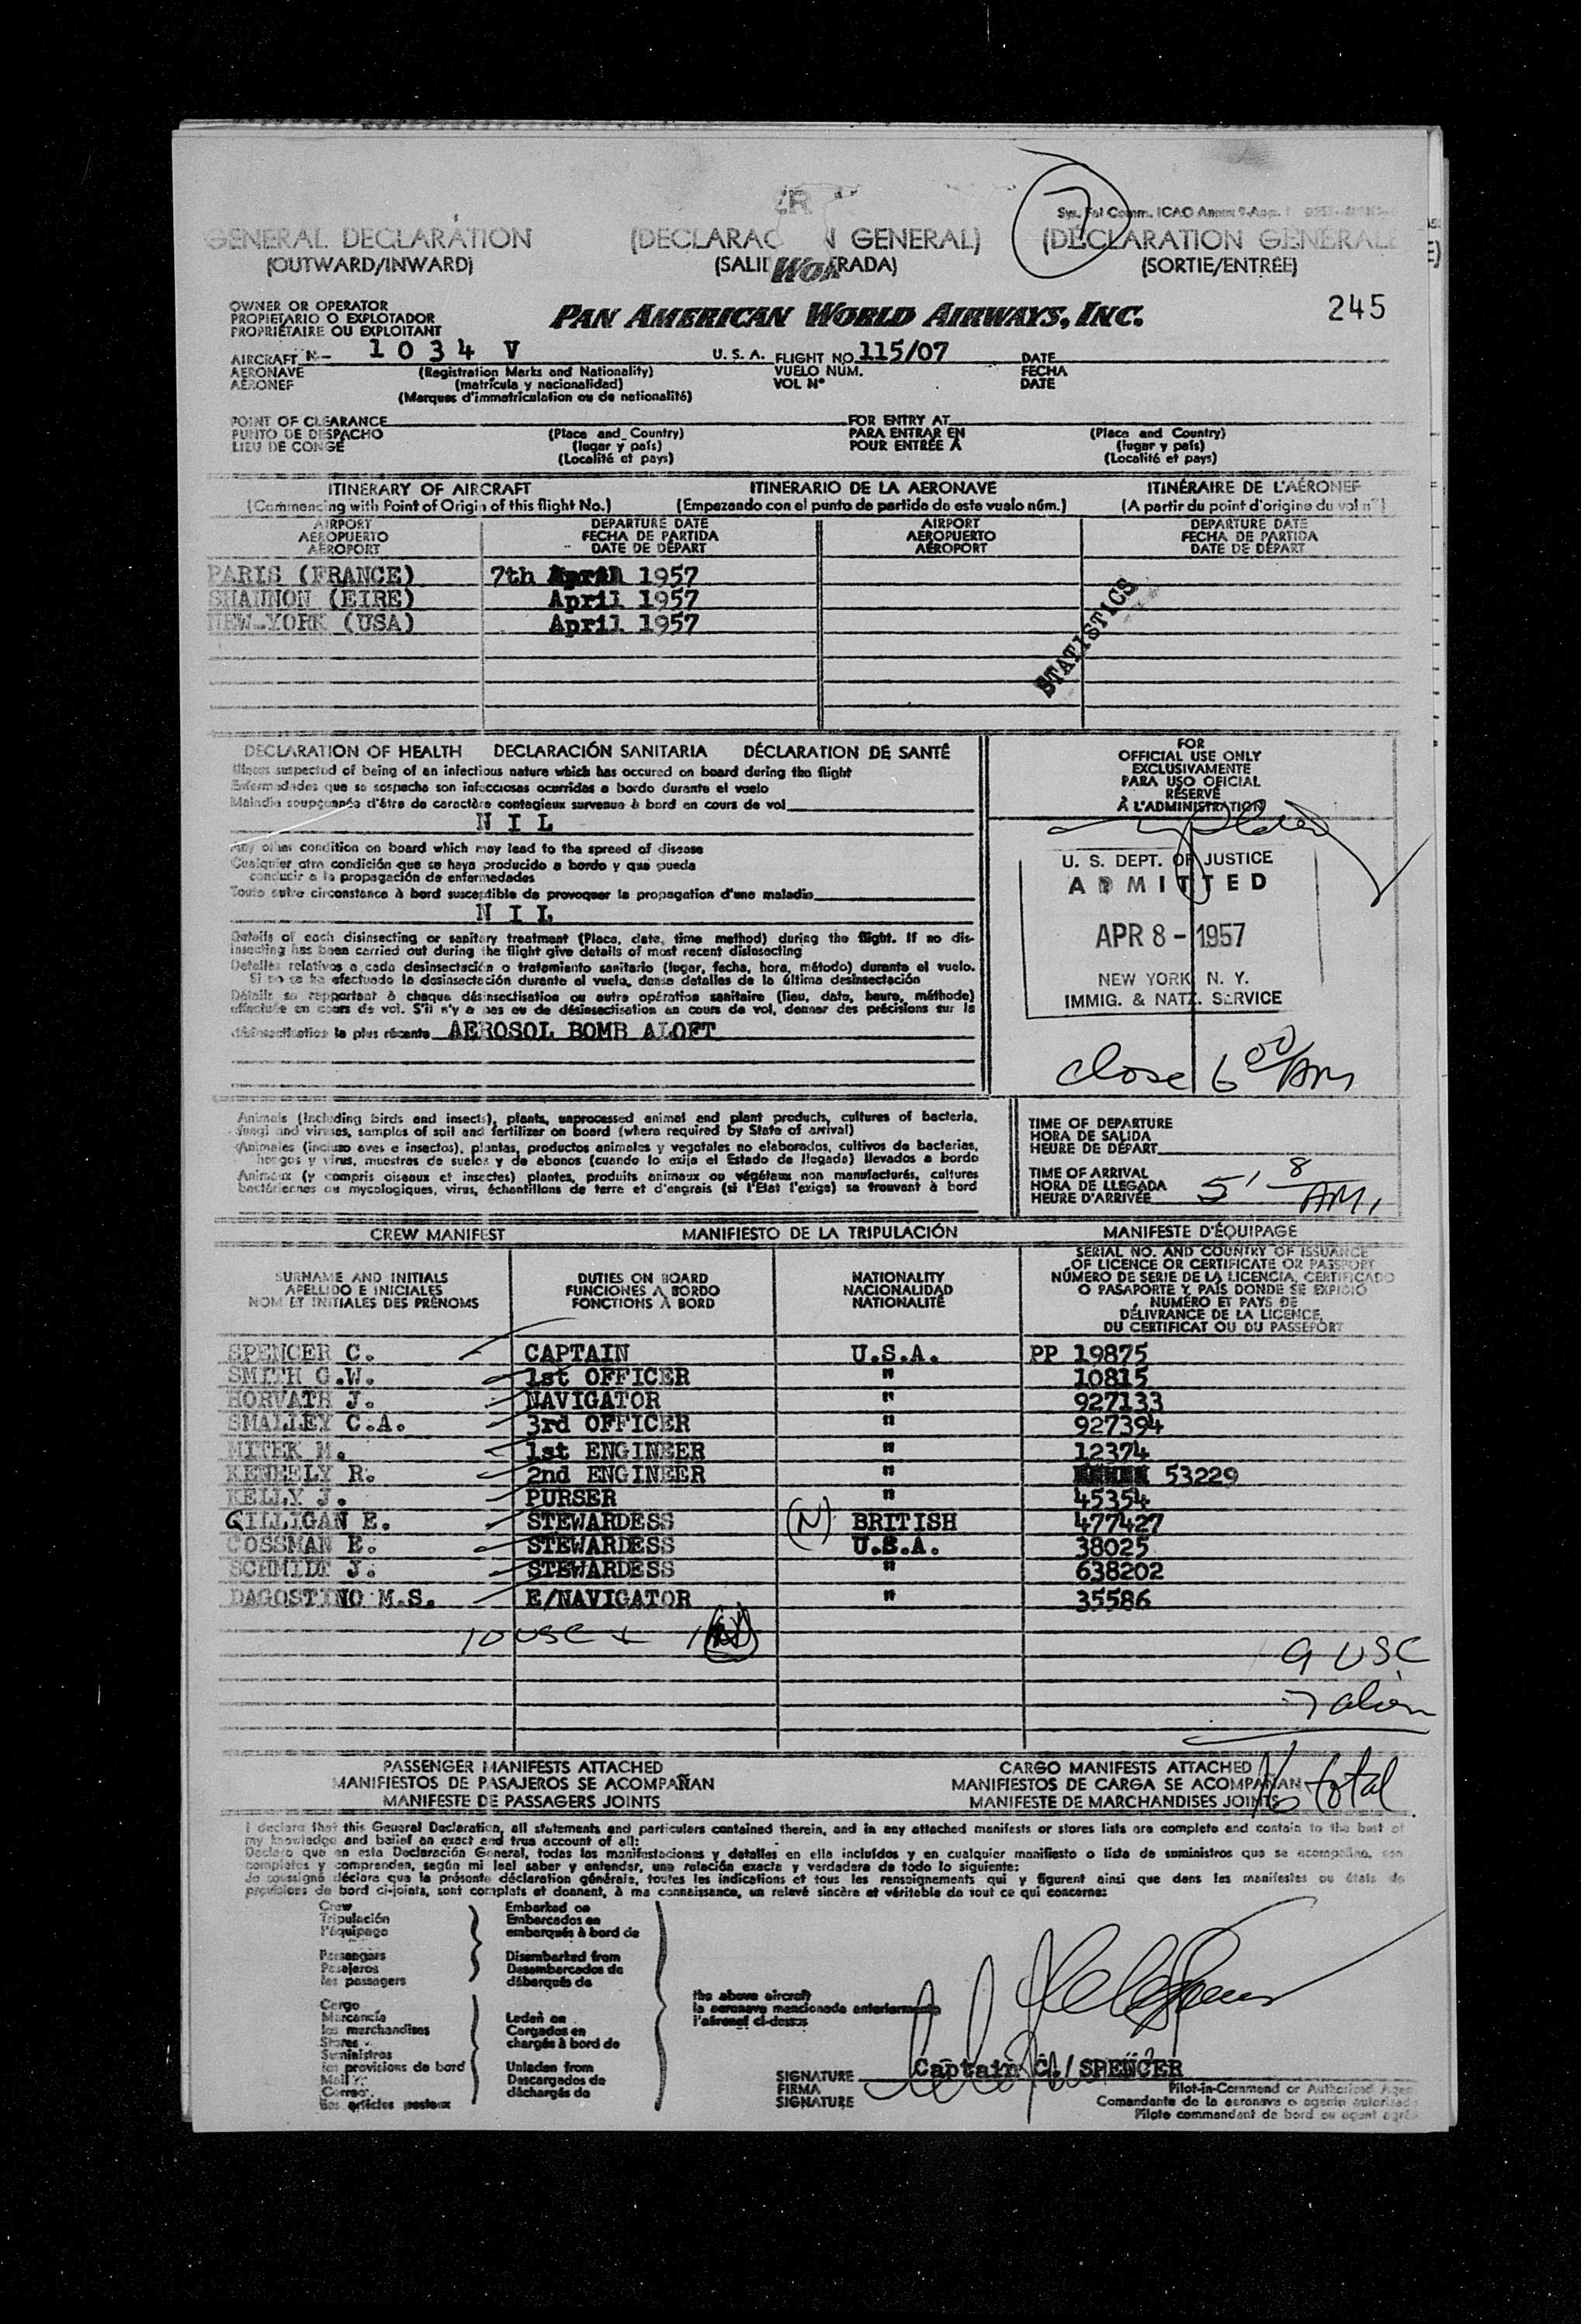 Sys. Fol Comm. ICAO Annex 9-App. 1
7
GENERAL DECLARATION (DECLARAC N GENERAL) (DÉCLARATION GÉNÉRALE
(OUTWARD/INWARD) (SALI RADA) (SORTIE/ENTRÉE)
OWNER OR OPERATOR
PROPIETARIO O EXPLOTADOR
PROPRIÉTAIRE OU EXPLOITANT
PAN AMERICAN WORLD AIRWAYS, INC.
245
AIRCRAFT N- 1034 V U. S. A. FLIGHT NO 115/07 DATE
AERONAVE (Registration Marks and Nationality) VUELO NÚM. FECHA
AÉRONEF (matrícula y nacionalidad) VOL N° DATE
(Marques d'immatriculation ou de nationalité)
POINT OF CLEARANCE FOR ENTRY AT
PUNTO DE DESPACHO (Place and Country) PARA ENTRAR EN (Place and Country)
LIEU DE CONGÉ (lugar y país) POUR ENTRÉE À (lugar y país)
(Localité et pays) (Localité et pays)
ITINERARY OF AIRCRAFT ITINERARIO DE LA AERONAVE ITINÉRAIRE DE L'AÉRONEF
(Commencing with Point of Origin of this flight No.) (Empezando con el punto de partida de este vuelo núm.) (A partir du point d'origine du vol n°)
AIRPORT DEPARTURE DATE AIRPORT DEPARTURE DATE
AEROPUERTO FECHA DE PARTIDA AEROPUERTO FECHA DE PARTIDA
AÉROPORT DATE DE DÉPART AÉROPORT DATE DE DÉPART
PARIS (FRANCE) 7th April 1957
SHANNON (EIRE) April 1957
NEW-YORK (USA) April 1957
STATISTICS
DECLARATION OF HEALTH DECLARACIÓN SANITARIA DÉCLARATION DE SANTÉ
Illness suspected of being of an infectious nature which has occured on board during the flight
Enfermedades que se sospecha son infecciosas ocurridas a bordo durante el vuelo
Maladie soupçonnée d'être de caractère contagieux survenue à bord en cours de vol
N I L
Any other condition on board which may lead to the spread of disease
Cualquier otra condición que se haya producido a bordo y que pueda
conducir a la propagación de enfermedades
Toute autre circonstance à bord susceptible de provoquer la propagation d'une maladie
N I L
Details of each disinsecting or sanitary treatment (Place, date, time method) during the flight. If no dis-
insecting has been carried out during the flight give details of most recent disinsecting
Detalles relativos a cada desinsectación o tratamiento sanitario (lugar, fecha, hora, método) durante el vuelo.
Si no se ha efectuado la desinsectación durante el vuelo, danse detalles de la última desinsectación
Détails se rapportant à chaque désinsectisation ou autre opération sanitaire (lieu, date, heure, méthode)
effectuée en cours de vol. S'il n'y a pas eu de désinsectisation en cours de vol, donner des précisions sur la
désinsectisation la plus récente AEROSOL BOMB ALOFT
FOR
OFFICIAL USE ONLY
EXCLUSIVAMENTE
PARA USO OFICIAL
RÉSERVÉ
À L'ADMINISTRATION
U. S. DEPT. OF JUSTICE
ADMITTED
APR 8 - 1957
NEW YORK, N. Y.
IMMIG. & NATZ. SERVICE
close 6 00 AM
Animals (including birds and insects), plants, unprocessed animal and plant products, cultures of bacteria,
fungi and viruses, samples of soil and fertilizer on board (where required by State of arrival)
Animales (incluso aves e insectos), plantas, productos animales y vegetales no elaborados, cultivos de bacterias,
hongos y virus, muestras de suelos y de abonos (cuando lo exija el Estado de llegada) llevados a bordo
Animaux (y compris oiseaux et insectes) plantes, produits animaux ou végétaux non manufacturés, cultures
bactériennes ou mycologiques, virus, échantillons de terre et d'engrais (si l'État l'exige) se trouvant à bord
TIME OF DEPARTURE
HORA DE SALIDA
HEURE DE DÉPART
TIME OF ARRIVAL
HORA DE LLEGADA
HEURE D'ARRIVÉE 5' 8 AM.
CREW MANIFEST MANIFIESTO DE LA TRIPULACIÓN MANIFESTE D'ÉQUIPAGE
SURNAME AND INITIALS
APELLIDO E INICIALES
NOM ET INITIALES DES PRÉNOMS
DUTIES ON BOARD
FUNCIONES A BORDO
FONCTIONS À BORD
NATIONALITY
NACIONALIDAD
NATIONALITÉ
SERIAL NO. AND COUNTRY OF ISSUANCE
OF LICENCE OR CERTIFICATE OR PASSPORT
NÚMERO DE SERIE DE LA LICENCIA, CERTIFICADO
O PASAPORTE Y PAÍS DONDE SE EXPIDIÓ
NUMÉRO ET PAYS DE
DÉLIVRANCE DE LA LICENCE,
DU CERTIFICAT OU DU PASSEPORT
SPENCER C. CAPTAIN U.S.A. PP 19875
SMITH G.W. 1st OFFICER " 10815
HORVATH J. NAVIGATOR " 927133
SMALLEY C.A. 3rd OFFICER " 927394
MITEK M. 1st ENGINEER " 12374
KENEELY R. 2nd ENGINEER " 53229
KELLY J. PURSER " 45354
GILLIGAN E. STEWARDESS (N) BRITISH 477427
COSSMAN E. STEWARDESS U.S.A. 38025
SCHMIDT J. STEWARDESS " 638202
DAGOSTINO M.S. E/NAVIGATOR " 35586
10 USC + 1 (N)
9 USC
7 alien
16 total
PASSENGER MANIFESTS ATTACHED CARGO MANIFESTS ATTACHED
MANIFIESTOS DE PASAJEROS SE ACOMPAÑAN MANIFIESTOS DE CARGA SE ACOMPAÑAN
MANIFESTE DE PASSAGERS JOINTS MANIFESTE DE MARCHANDISES JOINTS
I declare that this General Declaration, all statements and particulars contained therein, and in any attached manifests or stores lists are complete and contain to the best of
my knowledge and belief an exact and true account of all:
Declaro que en esta Declaración General, todas las manifestaciones y detalles en ella incluídos y en cualquier manifiesto o lista de suministros que se acompañe, son
completos y comprenden, según mi leal saber y entender, una relación exacta y verdadera de todo lo siguiente:
Je soussigné déclare que la présente déclaration générale, toutes les indications et tous les renseignements qui y figurent ainsi que dans les manifestes ou états de
provisions de bord ci-joints, sont complets et donnent, à ma connaissance, un relevé sincère et véritable de tout ce qui concerne:
Crew
Tripulación
l'équipage
Passengers
Pasajeros
les passagers
Cargo
Mercancía
les marchandises
Stores
Suministros
les provisions de bord
Mail
Correo
les articles postaux
Embarked on
Embarcados en
embarqués à bord de
Disembarked from
Desembarcados de
débarqués de
Laden on
Cargados en
chargés à bord de
Unladen from
Descargados de
déchargés de
the above aircraft
la aeronave mencionada anteriormente
l'aéronef ci-dessus
SIGNATURE Captain C. SPENCER
FIRMA
SIGNATURE
Pilot-in-Command or Authorized Agent
Comandante de la aeronave o agente autorizado
Pilote commandant de bord ou agent agréé